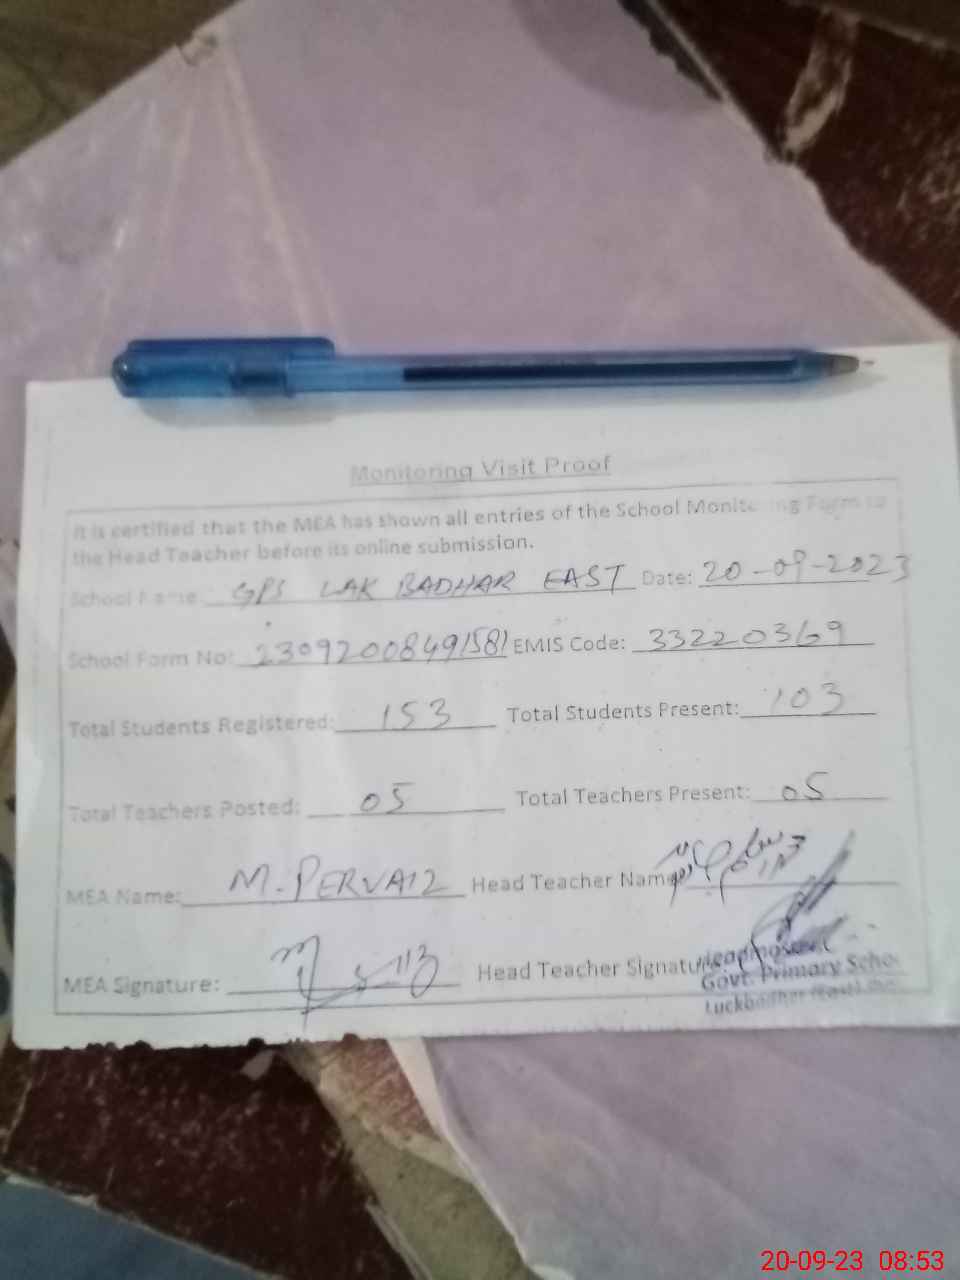 Monitoring Visit Proof
It is certified that the MEA has shown all entries of the School Monitoring Form to
the Head Teacher before its online submission.
School Name: GPS LAK BADHAR EAST Date: 20-09-2023
School Form No: 23092008491581 EMIS Code: 33220369
Total Students Registered: 153 Total Students Present: 103
Total Teachers Posted: 05 Total Teachers Present: 05
MEA Name: M. PERVAIZ Head Teacher Name:
MEA Signature: Head Teacher Signature:
Govt. Primary Schoo
20-09-23 08:53